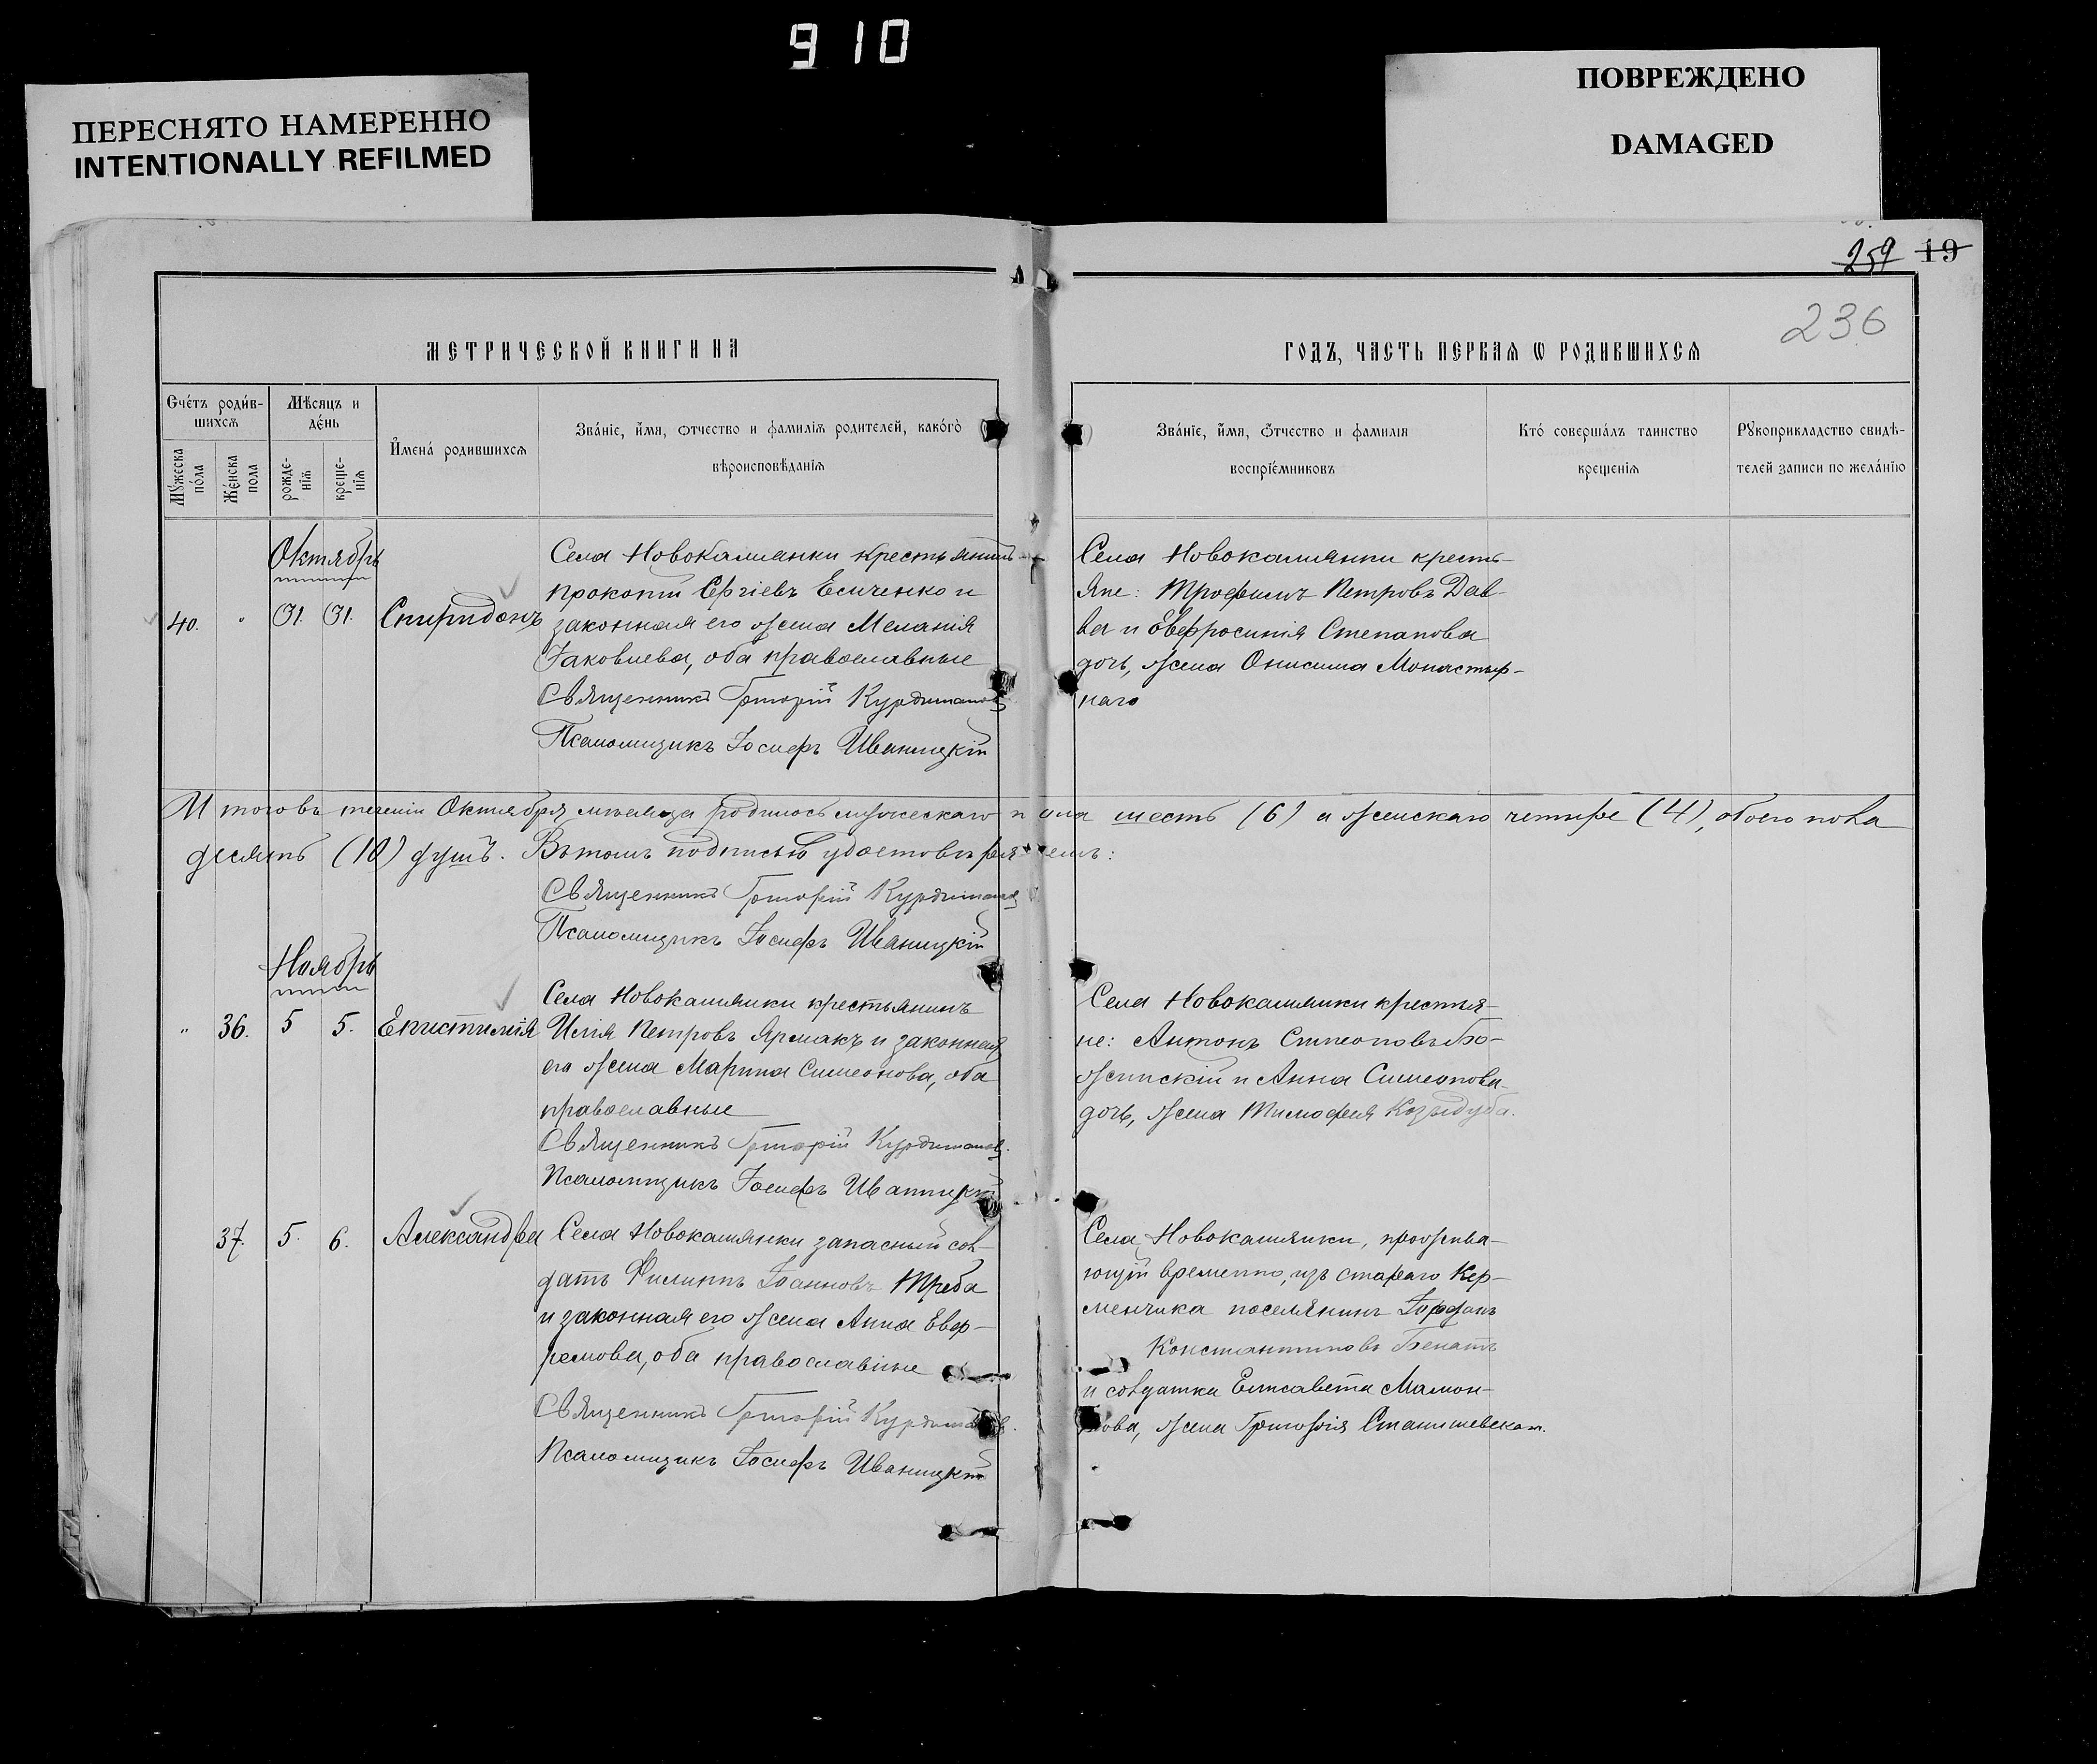 910
ПЕРЕСНЯТО НАМЕРЕННО
INTENTIONALLY REFILMED
ПОВРЕЖДЕНО
DAMAGED
259 19
236
МЕТРИЧЕСКОЙ КНИГИ НА
ГОДЪ, ЧАСТЬ ПЕРВАѦ Ѡ РОДИВШИХСѦ
Счётъ роди́в-
шихсѧ
Мѣсяцъ и
де́нь
Мꙋ́жеска
по́ла
Же́нска
пола
рожде-
нїѧ
креще-
нїѧ
И҆мена́ родившихсѧ
Зва́нїе, и҆́мя, ѻтчество и фамилїѧ родителей, како́гѡ
вѣроисповѣ́данїѧ
Зва́нїе, и҆́мя, ѻ҆́тчество и фамилїя
воспрїе́мниковъ
Кто́ соверша́лъ таинство
крещенїѧ
Рꙋкоприкладство свидѣ-
телей записи по жела́нїю
Октябрь
40. " 31. 31. Спиридонъ
Села Новокамянки крестьянинъ
Прокопій Сергіевъ Есиченко и
законная его жена Меланія
Іаковлева, оба православные
Священникъ Григорій Курдиман
Псаломщикъ Іосифъ Иваницкій
Села Новокамянки кресть-
яне: Трофимъ Петровъ
и Евфросинія Степанова
дочь, жена Онисима Монастыр-
наго
Итого въ теченіи Октября мѣсяца родилось мужескаго пола шесть (6) и женскаго четыре (4), обоего пола
десять (10) душъ. Въ томъ подписью удостовѣряемъ:
Священникъ Григорій Курдиман
Псаломщикъ Іосифъ Иваницкій
Ноябрь
" 36. 5 5. Епистимія
Села Новокамянки крестьянинъ
Илія Петровъ Ярмакъ и законная
его жена Марина Симеонова, оба
православные
Священникъ Григорій Курдиман
Псаломщикъ Іосифъ Иваницкій
Села Новокамянки крестья-
не: Антонъ Симеоновъ Бо-
жинскій и Анна Симеонова
дочь, жена Тимофея Козыдуба.
37. 5. 6. Александра
Села Новокамянки запасный сол-
датъ Филиппъ Іоанновъ Треба
и законная его жена Анна Евф-
ремова, оба православные
Священникъ Григорій Курдиман
Псаломщикъ Іосифъ Иваницкій
Села Новокамянки, прожива-
ющій временно, изъ стараго Кер-
менчика поселянинъ Іорданъ
Константиновъ
и солдатка Елисавета Мамон-
това, жена Григорія Станишевскаго.